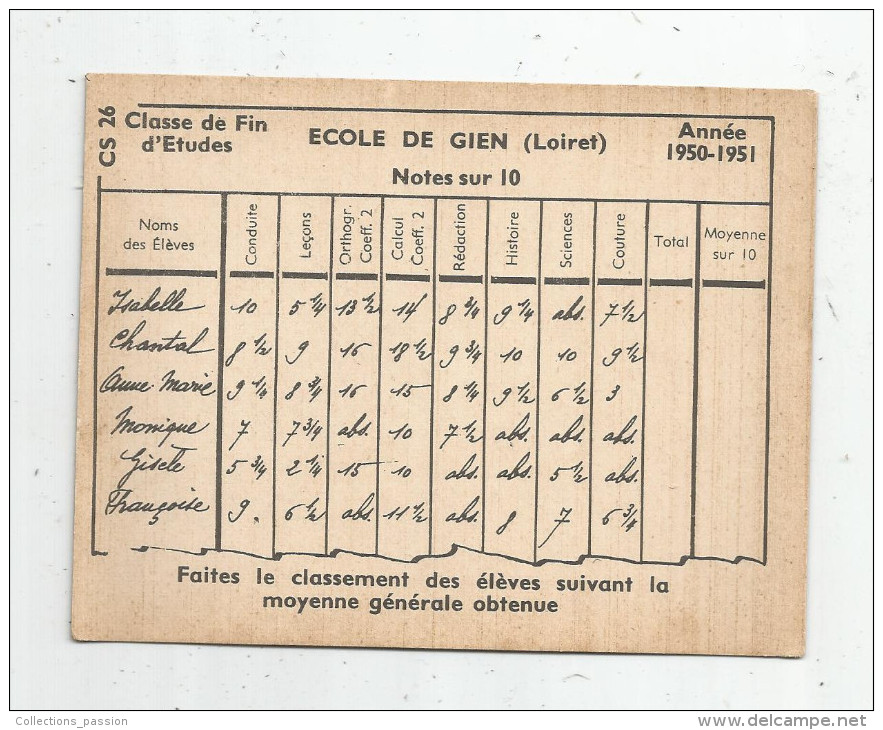 CS 26
Classe de Fin d'Etudes
ECOLE DE GIEN (Loiret)
Année 1950-1951
Notes sur 10
Noms des Élèves | Conduite | Leçons | Orthogr. Coeff. 2 | Calcul Coeff. 2 | Rédaction | Histoire | Sciences | Couture | Total | Moyenne sur 10
Isabelle 10 5 1/4 13 1/2 14 8 3/4 9 1/4 abs. 7 1/2
Chantal 8 1/2 9 16 18 1/2 9 3/4 10 10 9 1/2
Anne-Marie 9 1/4 8 3/4 16 15 8 1/4 9 1/2 6 1/2 3
Monique 7 7 3/4 abs. 10 7 1/2 abs. abs. abs.
Gisèle 5 3/4 2 1/4 15 10 abs. abs. 5 1/2 abs.
Françoise 9. 6 1/2 abs. 11 1/2 abs. 8 7 6 3/4
Faites le classement des élèves suivant la
moyenne générale obtenue
Collections_passion
delcampe.net